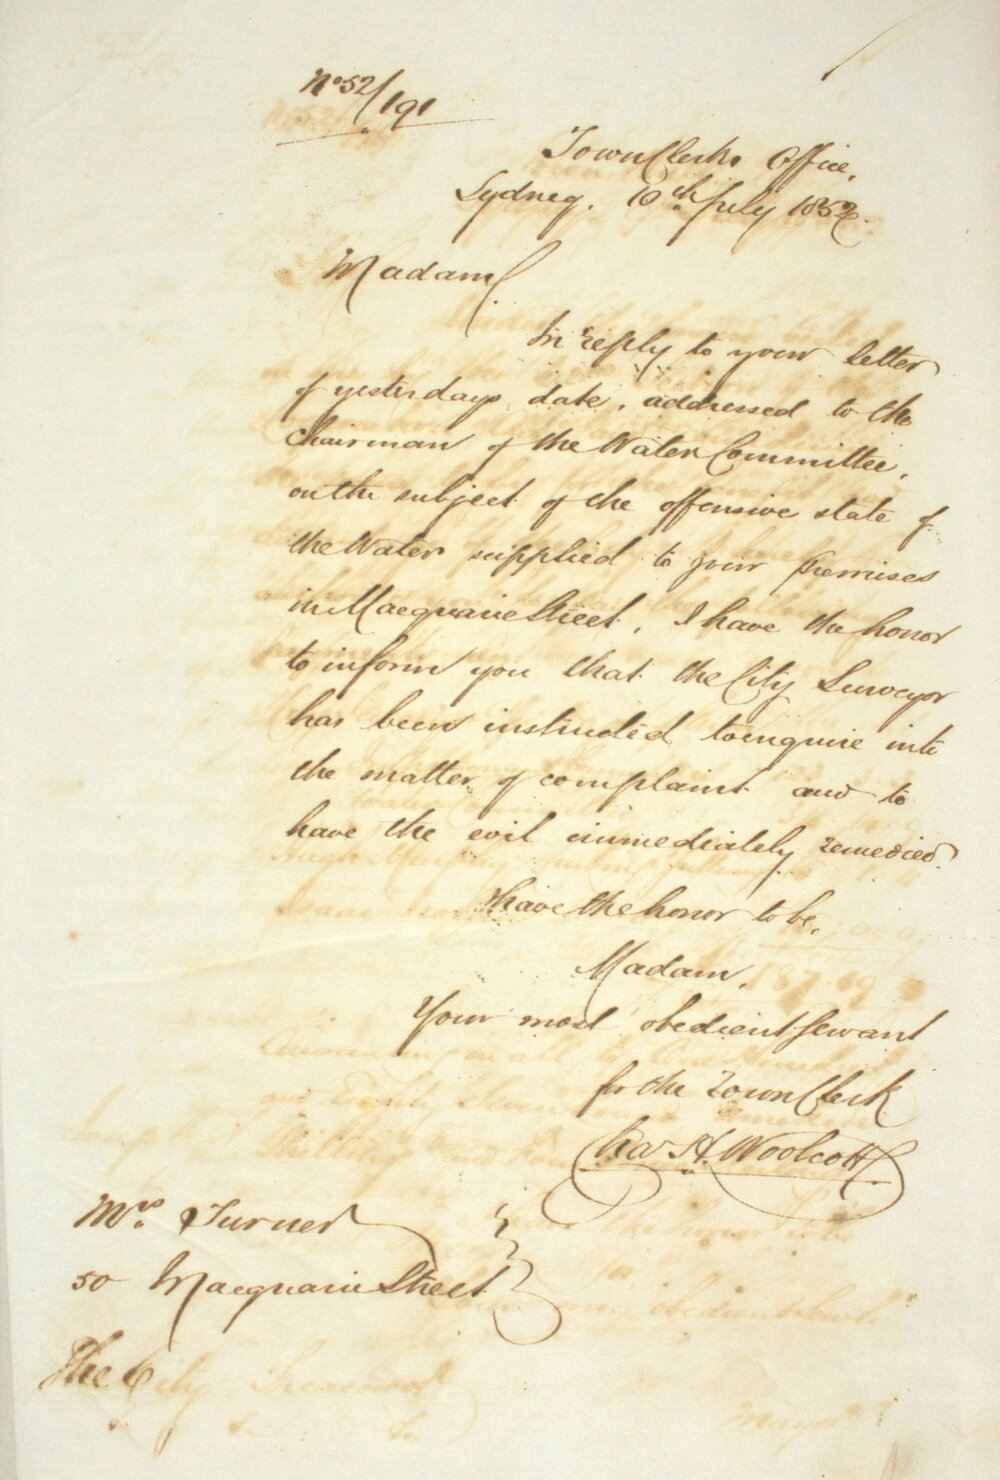 No 52/191
Town Clerks Office,
Sydney. 10th July 1852.
Madam,
In reply to your letter
of yesterdays date, addressed to the
Chairman of the Water Committee,
on the subject of the offensive state of
the Water supplied to your premises
in Macquarie Street, I have the honor
to inform you that the City Surveyor
has been instructed to enquire into
the matter of complaint and to
have the evil immediately remedied.
I have the honor to be,
Madam,
Your most obedient Servant
for the Town Clerk
Chas H. Woolcott
Mrs. Turner
50 Macquarie Street
The City